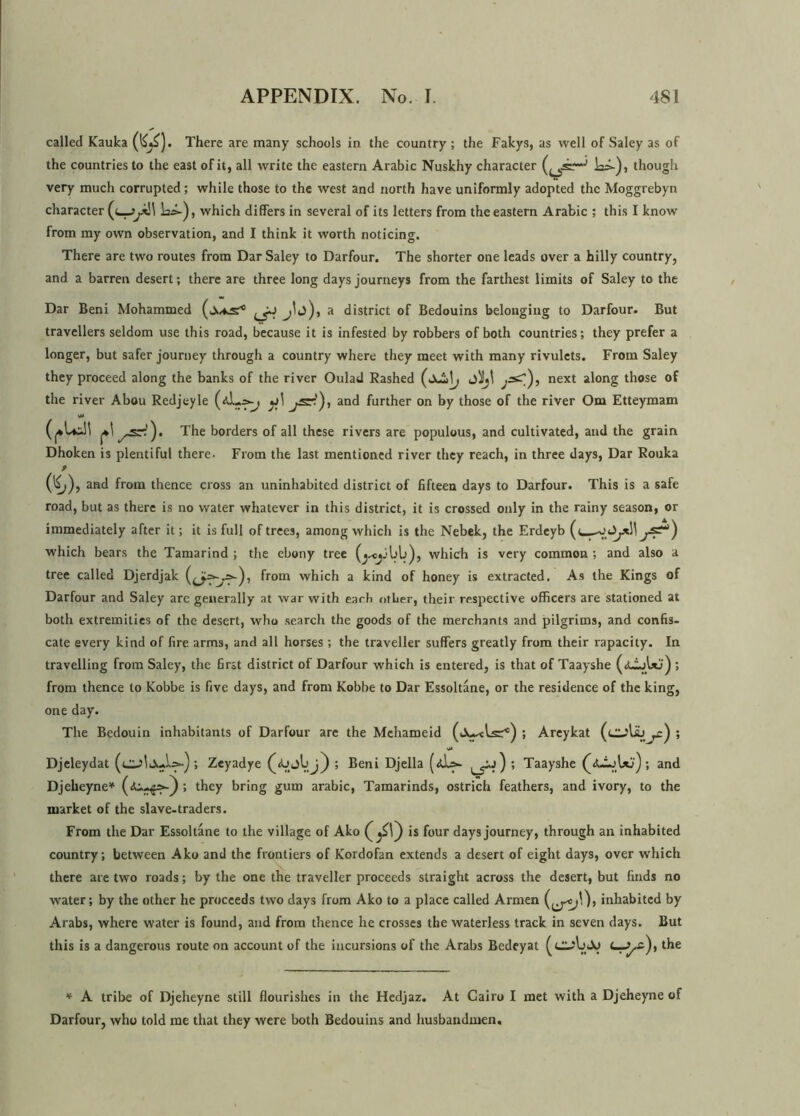 APPENDIX. No. I. 481
called Kauka (كوكا). There are many schools in the country; the Fakys, as well of Saley as of
the countries to the east of it, all write the eastern Arabic Nuskhy character (خط نسخي), though
very much corrupted; while those to the west and north have uniformly adopted the Moggrebyn
character (خط الغرب), which differs in several of its letters from the eastern Arabic; this I know
from my own observation, and I think it worth noticing.
There are two routes from Dar Saley to Darfour. The shorter one leads over a hilly country,
and a barren desert; there are three long days journeys from the farthest limits of Saley to the
Dar Beni Mohammed (دار بني محمد), a district of Bedouins belonging to Darfour. But
travellers seldom use this road, because it is infested by robbers of both countries; they prefer a
longer, but safer journey through a country where they meet with many rivulets. From Saley
they proceed along the banks of the river Oulad Rashed (بحر اولاد راشد), next along those of
the river Abou Redjeyle (بحر ابو رجيلة), and further on by those of the river Om Etteymam
(بحر ام التمام). The borders of all these rivers are populous, and cultivated, and the grain
Dhoken is plentiful there. From the last mentioned river they reach, in three days, Dar Rouka
(روكا), and from thence cross an uninhabited district of fifteen days to Darfour. This is a safe
road, but as there is no water whatever in this district, it is crossed only in the rainy season, or
immediately after it; it is full of trees, among which is the Nebek, the Erdeyb (شجر العرديب)
which bears the Tamarind; the ebony tree (بابانوس), which is very common; and also a
tree called Djerdjak (جرجق), from which a kind of honey is extracted. As the Kings of
Darfour and Saley are generally at war with each other, their respective officers are stationed at
both extremities of the desert, who search the goods of the merchants and pilgrims, and confis-
cate every kind of fire arms, and all horses; the traveller suffers greatly from their rapacity. In
travelling from Saley, the first district of Darfour which is entered, is that of Taayshe (تعايشة);
from thence to Kobbe is five days, and from Kobbe to Dar Essoltáne, or the residence of the king,
one day.
The Bedouin inhabitants of Darfour are the Mehameid (محاميد); Areykat (عريقات);
Djeleydat (جليدات); Zeyadye (زيادية); Beni Djella (بني جلة); Taayshe (تعايشة); and
Djeheyne* (جهينة); they bring gum arabic, Tamarinds, ostrich feathers, and ivory, to the
market of the slave-traders.
From the Dar Essoltáne to the village of Ako (اكو) is four days journey, through an inhabited
country; between Ako and the frontiers of Kordofan extends a desert of eight days, over which
there are two roads; by the one the traveller proceeds straight across the desert, but finds no
water; by the other he proceeds two days from Ako to a place called Armen (ارمن), inhabited by
Arabs, where water is found, and from thence he crosses the waterless track in seven days. But
this is a dangerous route on account of the incursions of the Arabs Bedeyat (عرب بديات), the
* A tribe of Djeheyne still flourishes in the Hedjaz. At Cairo I met with a Djeheyne of
Darfour, who told me that they were both Bedouins and husbandmen.